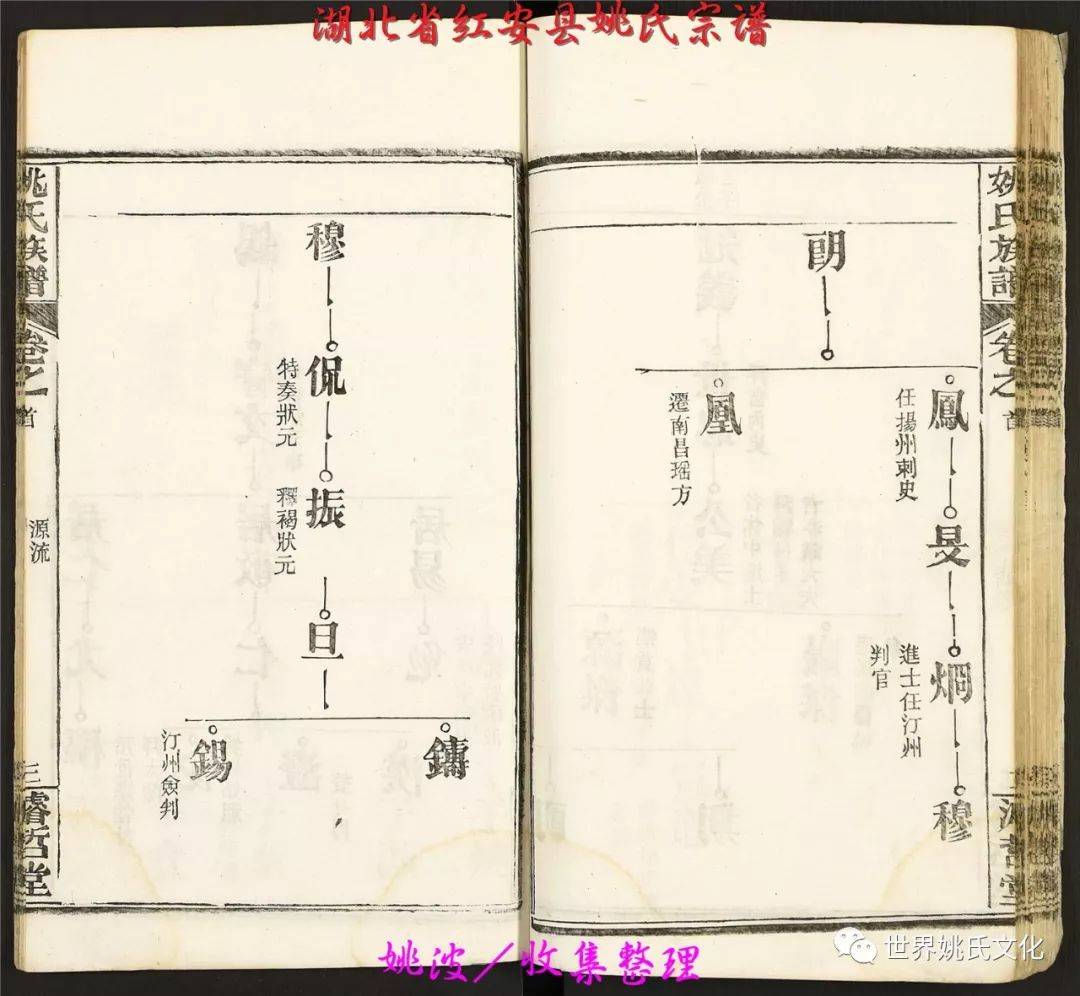 湖北省红安县姚氏宗谱
姚氏族譜
卷之
首
朙
鳳
任揚州刺史
旻
烱
進士任汀州
判官
穆
凰
遷南昌瑶方
穆
侃
特奏狀元
振
釋褐狀元
旦
鑄
錫
汀州僉判
姚氏族譜
卷之
首
源流
三
睿哲堂
姚波／收集整理
世界姚氏文化